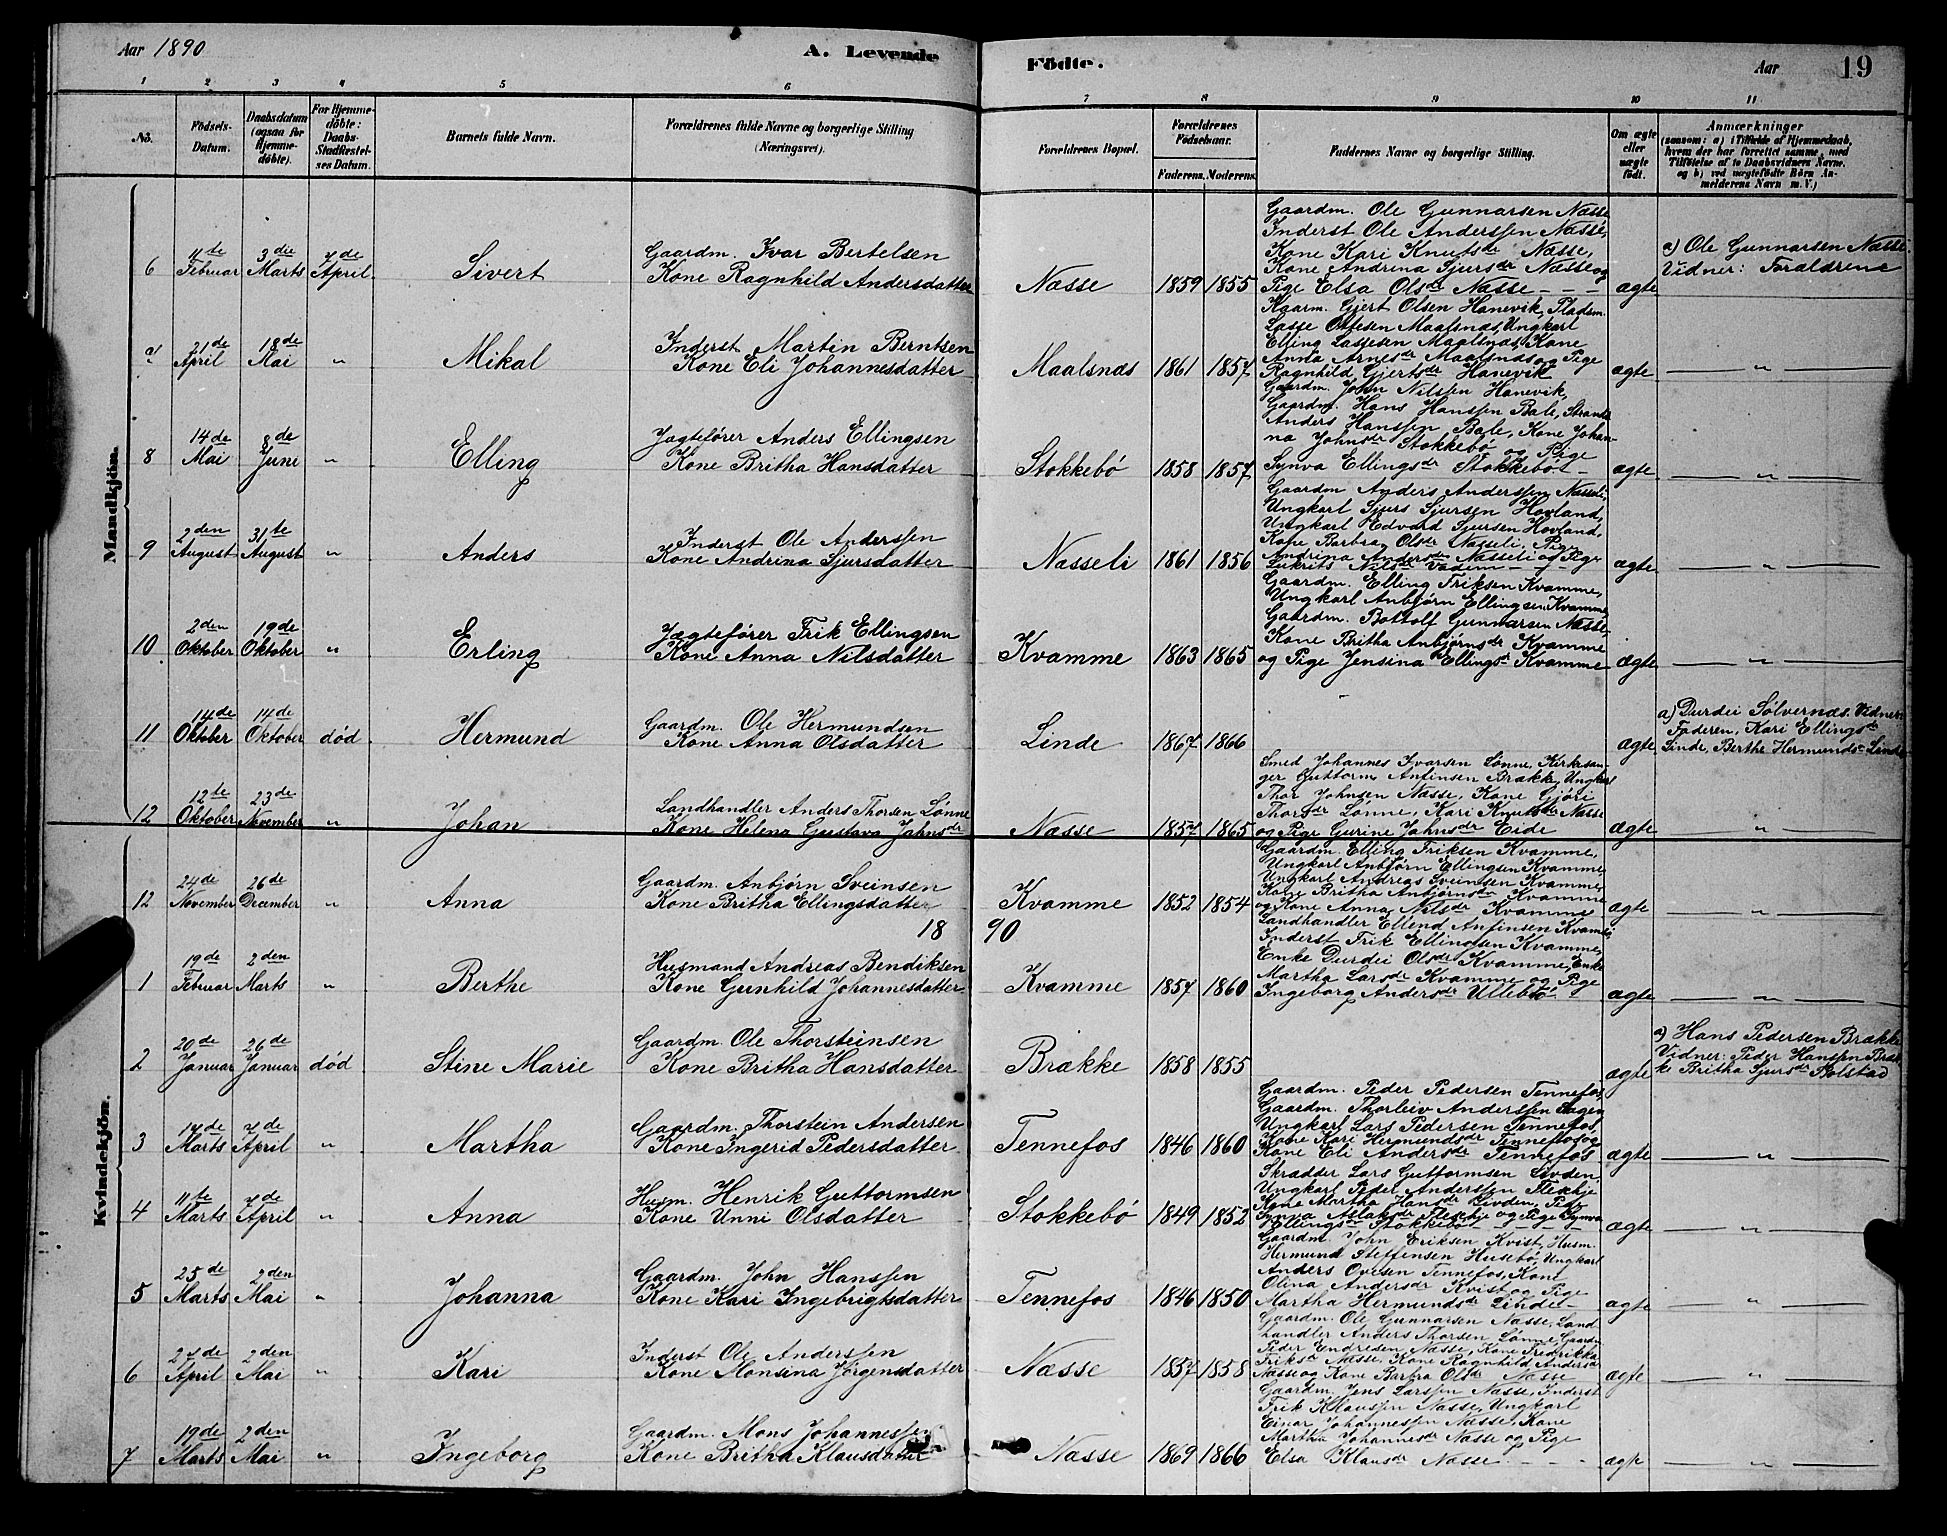 Aar 1890
A. Levende
Födte.
Aar
19
1 2 3 4 5 6 7 8 9 10 11
No.
Födsels-Datum.
Daabsdatum (ogsaa for Hjemme-döbte).
For Hjemme-döbte: Daabs-Stadfæstel-ses Datum.
Barnets fulde Navn.
Forældrenes fulde Navne og borgerlige Stilling
(Næringsvei).
Forældrenes Bopæl.
Forældrenes Födselsaar.
Faderens. Moderens.
Faddernes Navne og borgerlige Stilling.
Om ægte eller uægte födt.
Anmærkninger
(saasom: a) i Tilfælde af Hjemmedaab, hvem der har forrettet samme, med Tilföielse af to Daabsvidners Navne, og b) ved uægtefödte Börn Anmelderens Navn m. V.)
Mandkjön.
6 Februar 3die Marts 7de April Sivert
Gaardm. Ivar Bertelsen
Kone Ragnhild Andersdatter
Næsse 1859 1855
Gaardm. Ole Gunnarsen Næsse
Inderst Ole Anderssen Næsse,
Kone Kari Knutsdr Næsse,
Kone Andrina Sjursdr Næsse og
Pige Elsa Olsdr Næsse - - -
ægte
a) Ole Gunnarsen Næsse.
Vidner: Forældrene
21de April 18de Mai " Mikal
Inderst Martin Berntsen
Kone Eli Johannesdatter
Maalsnæs 1861 1857
Kaarm. Gjert Olsen Hanevik, Pladsm.
Lasse Ottesen Maalsnæs, Ungkarl
Elling Lassesen Maalsnæs, Kone
Anna Arnesdr Maalsnæs og Pige
Ragnhild Gjertsdr Hanevik
ægte "
8 14de Mai 8de Juni " Elling
Jægtefører Anders Ellingsen
Kone Britha Hansdatter
Stokkebø 1858 1857
Gaardm. John Nilssen Hanevik,
Gaardm. Hans Hanssen Bale,
Anders Hanssen Bale, Kone Johan-
na Johnsdr Stokkebø og Pige
Synva Ellingsdr Stokkebø -
ægte "
9 2den August 31te August " Anders
Inderst Ole Anderssen
Kone Andrina Sjursdatter
Næsseli 1861 1856
Gaardm Anders Anderssen Næsseli,
Ungkarl Sjurs Sjursen Hovland,
Ungkarl Edvard Sjursen Hovland,
Kone Barbra Olsdr Næsseli, Pige
Andrina Andersdr Næsseli og Pige
Lukrits Nilsdr Vadem - -
ægte "
10 2den Oktober 19de Oktober " Erling
Jægtefører Erik Ellingsen
Kone Anna Nilsdatter
Kvamme 1863 1865
Gaardm. Elling Eriksen Kvamme,
Ungkarl Anbjørn Ellingsen Kvamme
Gaardm. Bottolf Gunnarsen Næsse,
Kone Britha Anbjørnsdr Kvamme
og Pige Jensina Ellingsdr Kvamme
ægte "
11 14de Oktober 14de Oktober død Hermund
Gaardm. Ole Hermundsen
Kone Anna Olsdatter
Linde 1867 1866
ægte
a) Durdei Sølvernæs. Vidner:
Faderen, Kari Ellingsdr
Linde, Berthe Hermundsdr Linde
12 12te Oktober 23de November " Johan
Landhandler Anders Thorsen Lønne
Kone Helena Gustava Johnsdr
Næsse 1857 1865
Smed Johannes Ivarsen Lønne, Kirkesan-
ger Guttorm Anfinsen Brække, Ungkarl
Thor Johnsen Næsse, Kone Gjøri
Thorsdr Lønne, Kari Knutsdr Næsse
og Pige Gurine Johnsdr Eide
ægte "
Kvindekjön.
12 24de November 26de December " Anna
Gaardm. Anbjørn Sveinsen
Kone Britha Ellingsdatter
Kvamme 1852 1854
Gaardm. Elling Eriksen Kvamme,
Ungkarl Anbjørn Ellingsen Kvamme
Ungkarl Andreas Sveinsen Kvamme
Kone Britha Anbjørnsdr Kvamme
og Kone Anna Nilsdr Kvamme
ægte "
18 90
1 19de Februar 2den Marts " Berthe
Husmand Andreas Bendiksen
Kone Gunhild Johannesdatter
Kvamme 1857 1860
Landhandler Ellend Anfinsen Kvamme
Inderst Erik Ellingsen Kvamme,
Enke Durdei Olsdr Kvamme, Enke
Martha Larsdr Kvamme og Pige
Ingeborg Andersdr Ullebø -
ægte "
2 20de Januar 26de Januar død Stine Marie
Gaardm. Ole Thorsteinsen
Kone Britha Hansdatter
Brække 1858 1855
ægte
a) Hans Pedersen Brække
Vidner: Peder Hanssen Bræk-
ke Britha Sjursdr Solstad
3 Marts 7de April " Martha
Gaardm. Thorstein Andersen
Kone Ingerid Pedersdatter
Tennefos 1846 1860
Gaardm. Peder Pedersen Tennefos,
Gaardm. Thorleiv Anderssen
Ungkarl Lars Pedersen Tennefos,
Kone Kari Hermundsdr Tennefos og
Kone Eli Andersdr Tennefos
ægte "
4 11te Marts 7de April " Anna
Husm. Henrik Guttormsen
Kone Unni Olsdatter
Stokkebø 1849 1852
Skrædder Lars Guttormsen Livden,
Ungkarl Peder Anderssen Flekkje
Kone Martha Hansdr Livden, Pige
Synva Aslaksdr Flekkje og Pige Synva
Ellingsdr Stokkebø - - - -
ægte "
5 25de Marts 2den Mai " Johanna
Gaardm. John Hanssen
Kone Kari Ingebrigtsdatter
Tennefos 1846 1850
Gaardm. John Eriksen Kvist, Husm.
Hermund Steffensen Husebø, Ungkarl
Anders Ovesen Tennefos, Kone
Olina Andersdr Kvist og Pige
Martha Hermundsdr Linde -
ægte "
6 27de April 2den Mai " Kari
Inderst Ole Anderssen
Kone Monsina Jörgensdatter
Næsse 1857 1858
Gaardm. Ole Gunnarsen Næsse, Land-
handler Anders Thorsen Lønne, Gaardm
Peder Endresen Næsse, Kone Fredrikka
Eriksdr Næsse, Kone Ragnhild Andersdr
Næsse og Kone Barbra Olsdr Næsse
ægte "
7 19de Marts 2den Mai " Ingeborg
Gaardm. Mons Johannessen
Kone Britha Klausdatter
Næsse 1869 1866
Gaardm. Jens Larssen Næsse, Inderst
Erik Klaussen Næsse, Ungkarl
Einar Johannessen Næsse, Kone
Martha Johannesdr Næsse og Pige
Elsa Klausdr Næsse - - -
ægte "